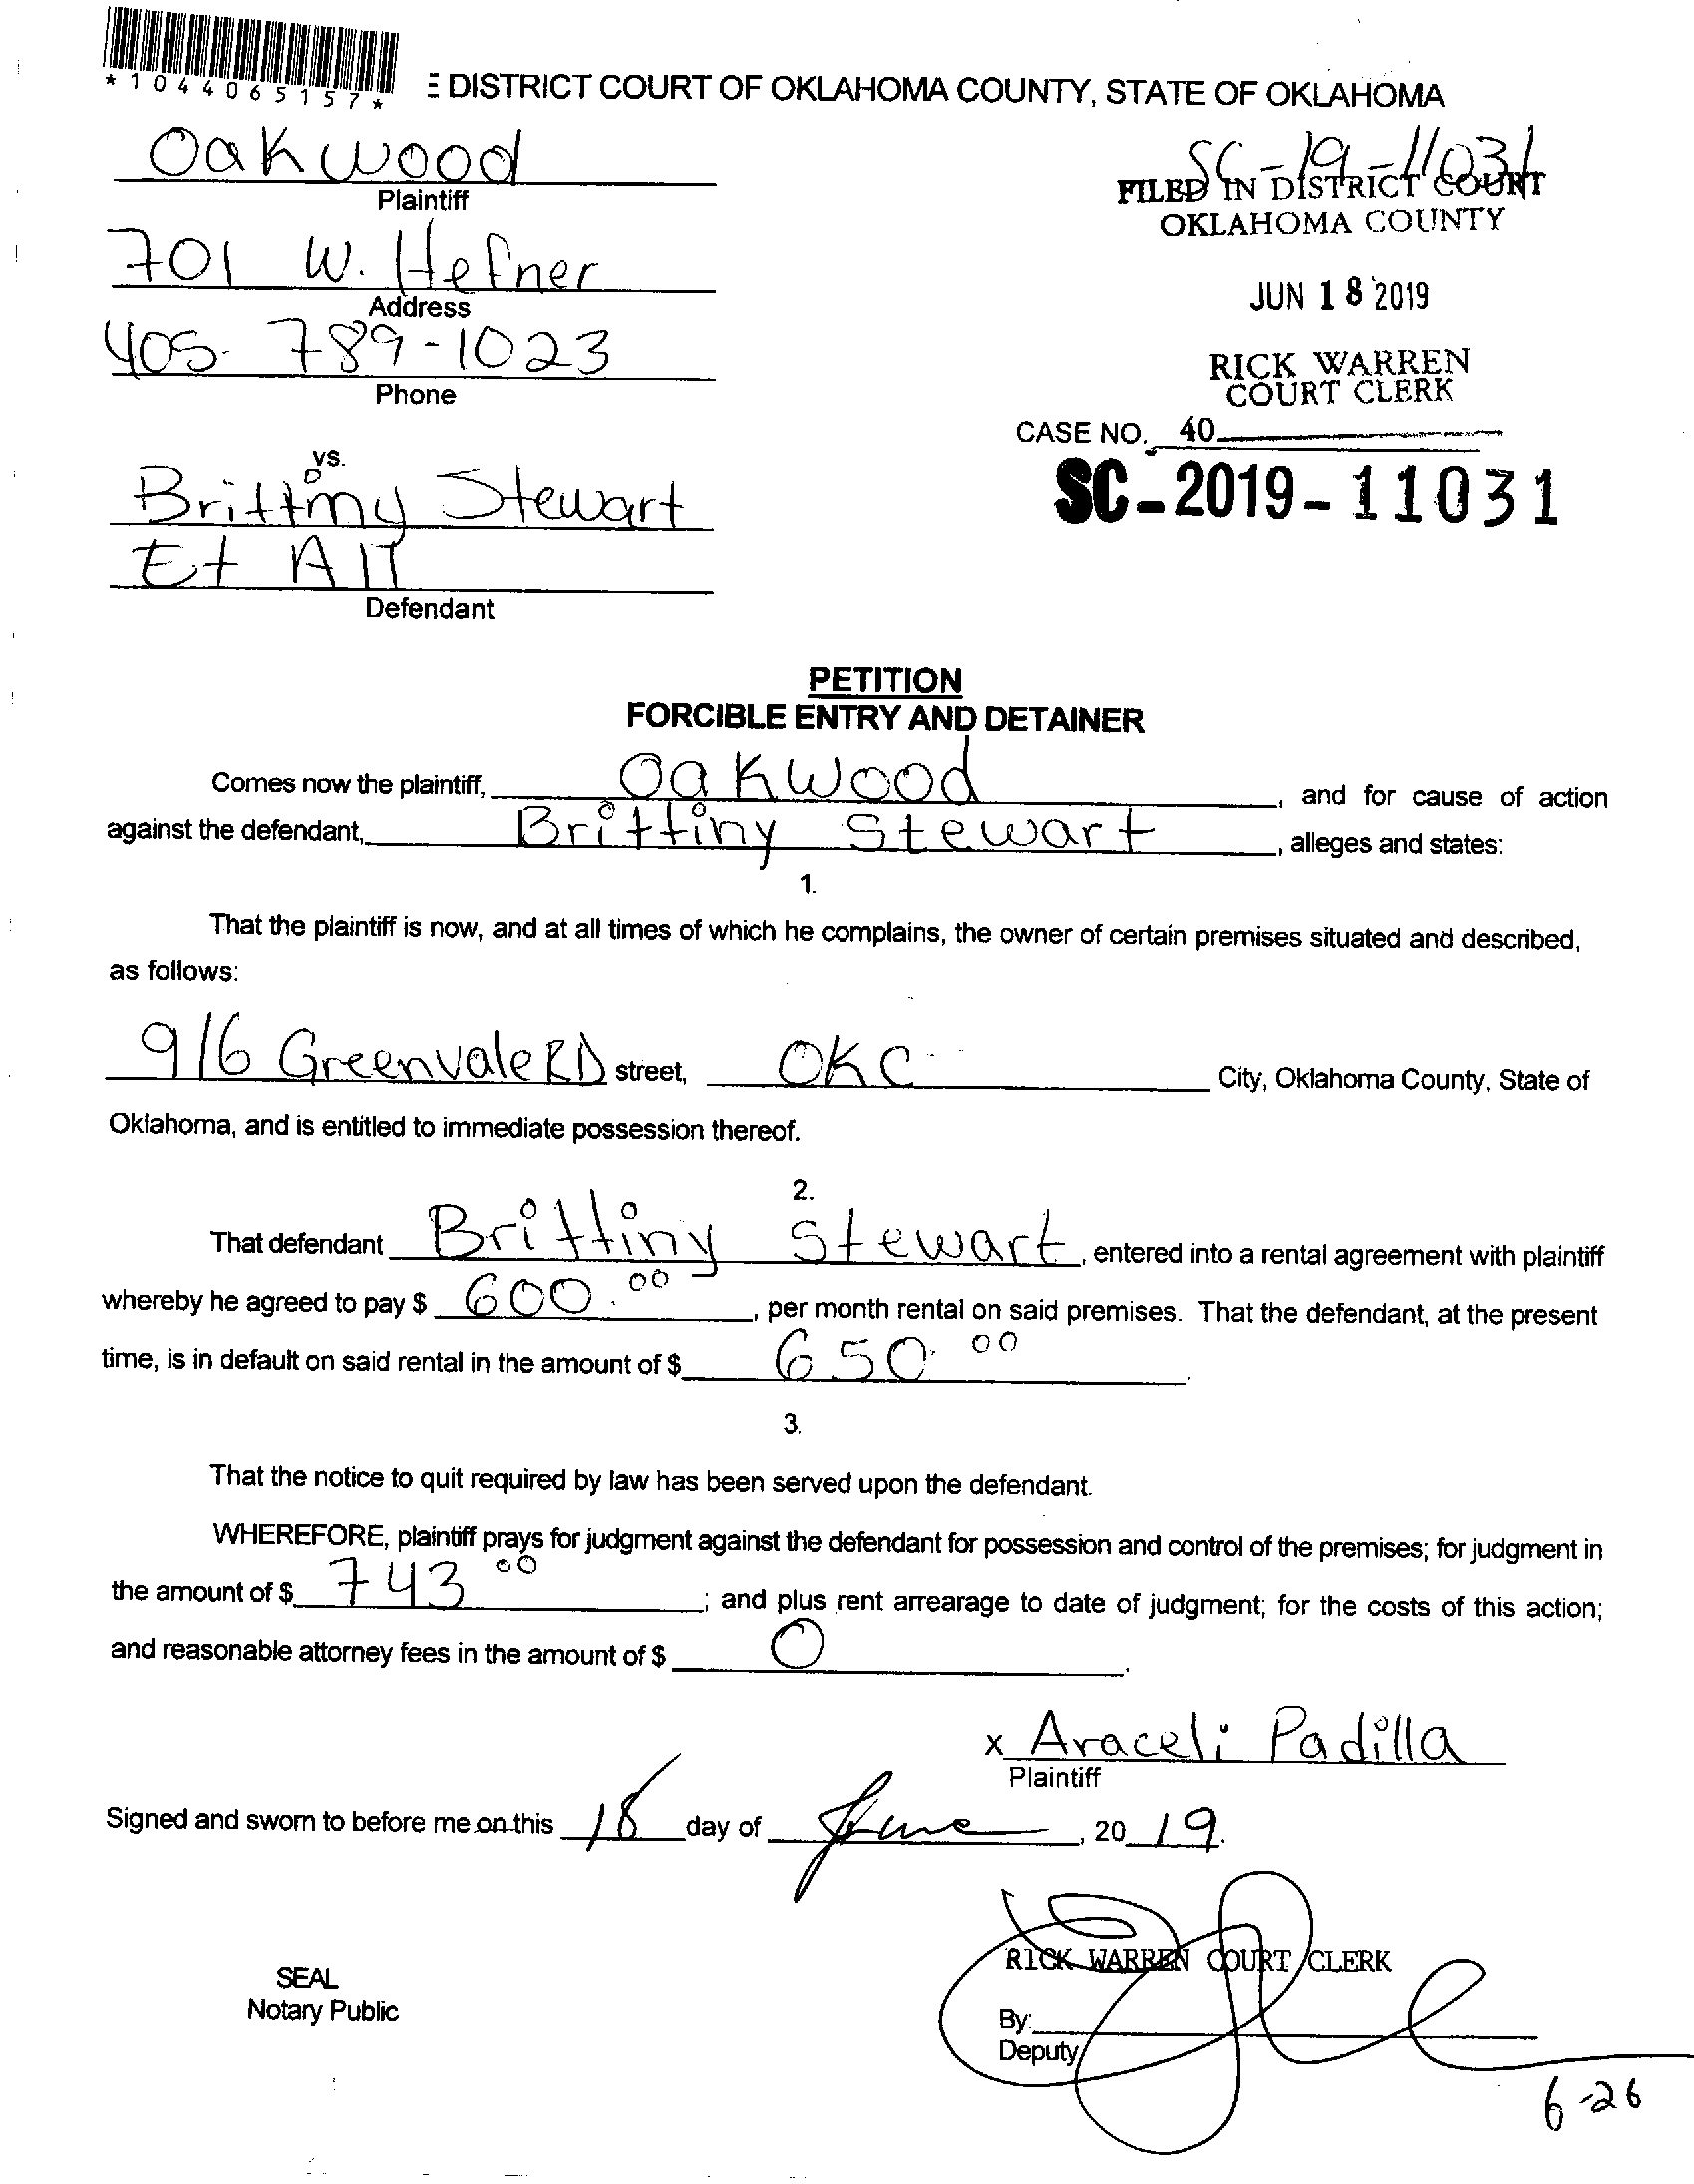 *1044065157*
E DISTRICT COURT OF OKLAHOMA COUNTY, STATE OF OKLAHOMA
Oakwood
Plaintiff
SC-19-11031
FILED IN DISTRICT COURT
OKLAHOMA COUNTY
701 W. Hefner
Address
JUN 18 2019
405-789-1023
Phone
RICK WARREN
COURT CLERK
CASE NO. 40
SC-2019-11031
vs.
Brittiny Stewart
Et All
Defendant
PETITION
FORCIBLE ENTRY AND DETAINER
Comes now the plaintiff, Oakwood, and for cause of action
against the defendant, Brittiny Stewart, alleges and states:
1.
That the plaintiff is now, and at all times of which he complains, the owner of certain premises situated and described,
as follows:
916 Greenvale RD street, OKC City, Oklahoma County, State of
Oklahoma, and is entitled to immediate possession thereof.
2.
That defendant Brittiny Stewart, entered into a rental agreement with plaintiff
whereby he agreed to pay $ 600.00, per month rental on said premises. That the defendant, at the present
time, is in default on said rental in the amount of $ 650.00.
3.
That the notice to quit required by law has been served upon the defendant.
WHEREFORE, plaintiff prays for judgment against the defendant for possession and control of the premises; for judgment in
the amount of $ 743 00; and plus rent arrearage to date of judgment; for the costs of this action;
and reasonable attorney fees in the amount of $ 0.
x Araceli Padilla
Plaintiff
Signed and sworn to before me on this 18 day of June, 20 19.
RICK WARREN COURT CLERK
SEAL
Notary Public
By:
Deputy
6-26